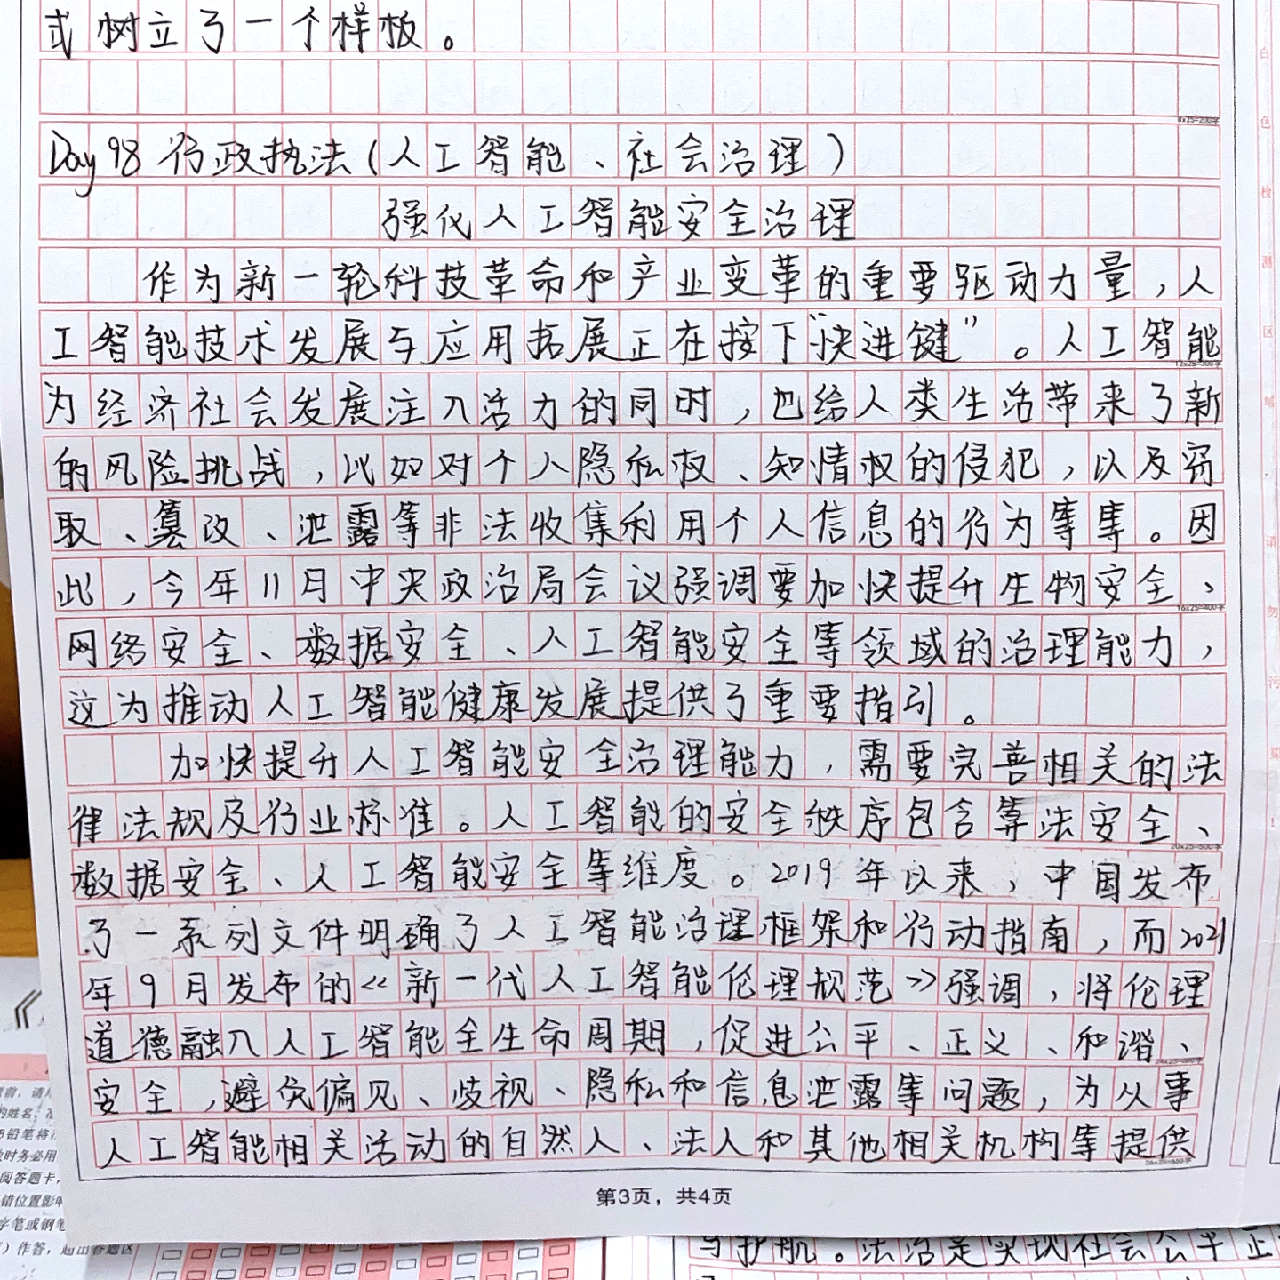 或树立了一个样板。
Day 98 行政执法(人工智能、社会治理)
强化人工智能安全治理
作为新一轮科技革命和产业变革的重要驱动力量,人
工智能技术发展与应用拓展正在按下“快进键”。人工智能
为经济社会发展注入活力的同时,也给人类生活带来了新
的风险挑战,比如对个人隐私权、知情权的侵犯,以及窃
取、篡改、泄露等非法收集利用个人信息的行为等等。因
此,今年11月中央政治局会议强调要加快提升生物安全、
网络安全、数据安全、人工智能安全等领域的治理能力,
这为推动人工智能健康发展提供了重要指引。
加快提升人工智能安全治理能力,需要完善相关的法
律法规及行业标准。人工智能的安全秩序包含算法安全、
数据安全、人工智能安全等维度。2019年以来,中国发布
了一系列文件明确了人工智能治理框架和行动指南,而2021
年9月发布的《新一代人工智能伦理规范》强调,将伦理
道德融入人工智能全生命周期,促进公平、正义、和谐、
安全,避免偏见、歧视、隐私和信息泄露等问题,为从事
人工智能相关活动的自然人、法人和其他相关机构等提供
第3页,共4页
与护航。法治是实现社会公平正